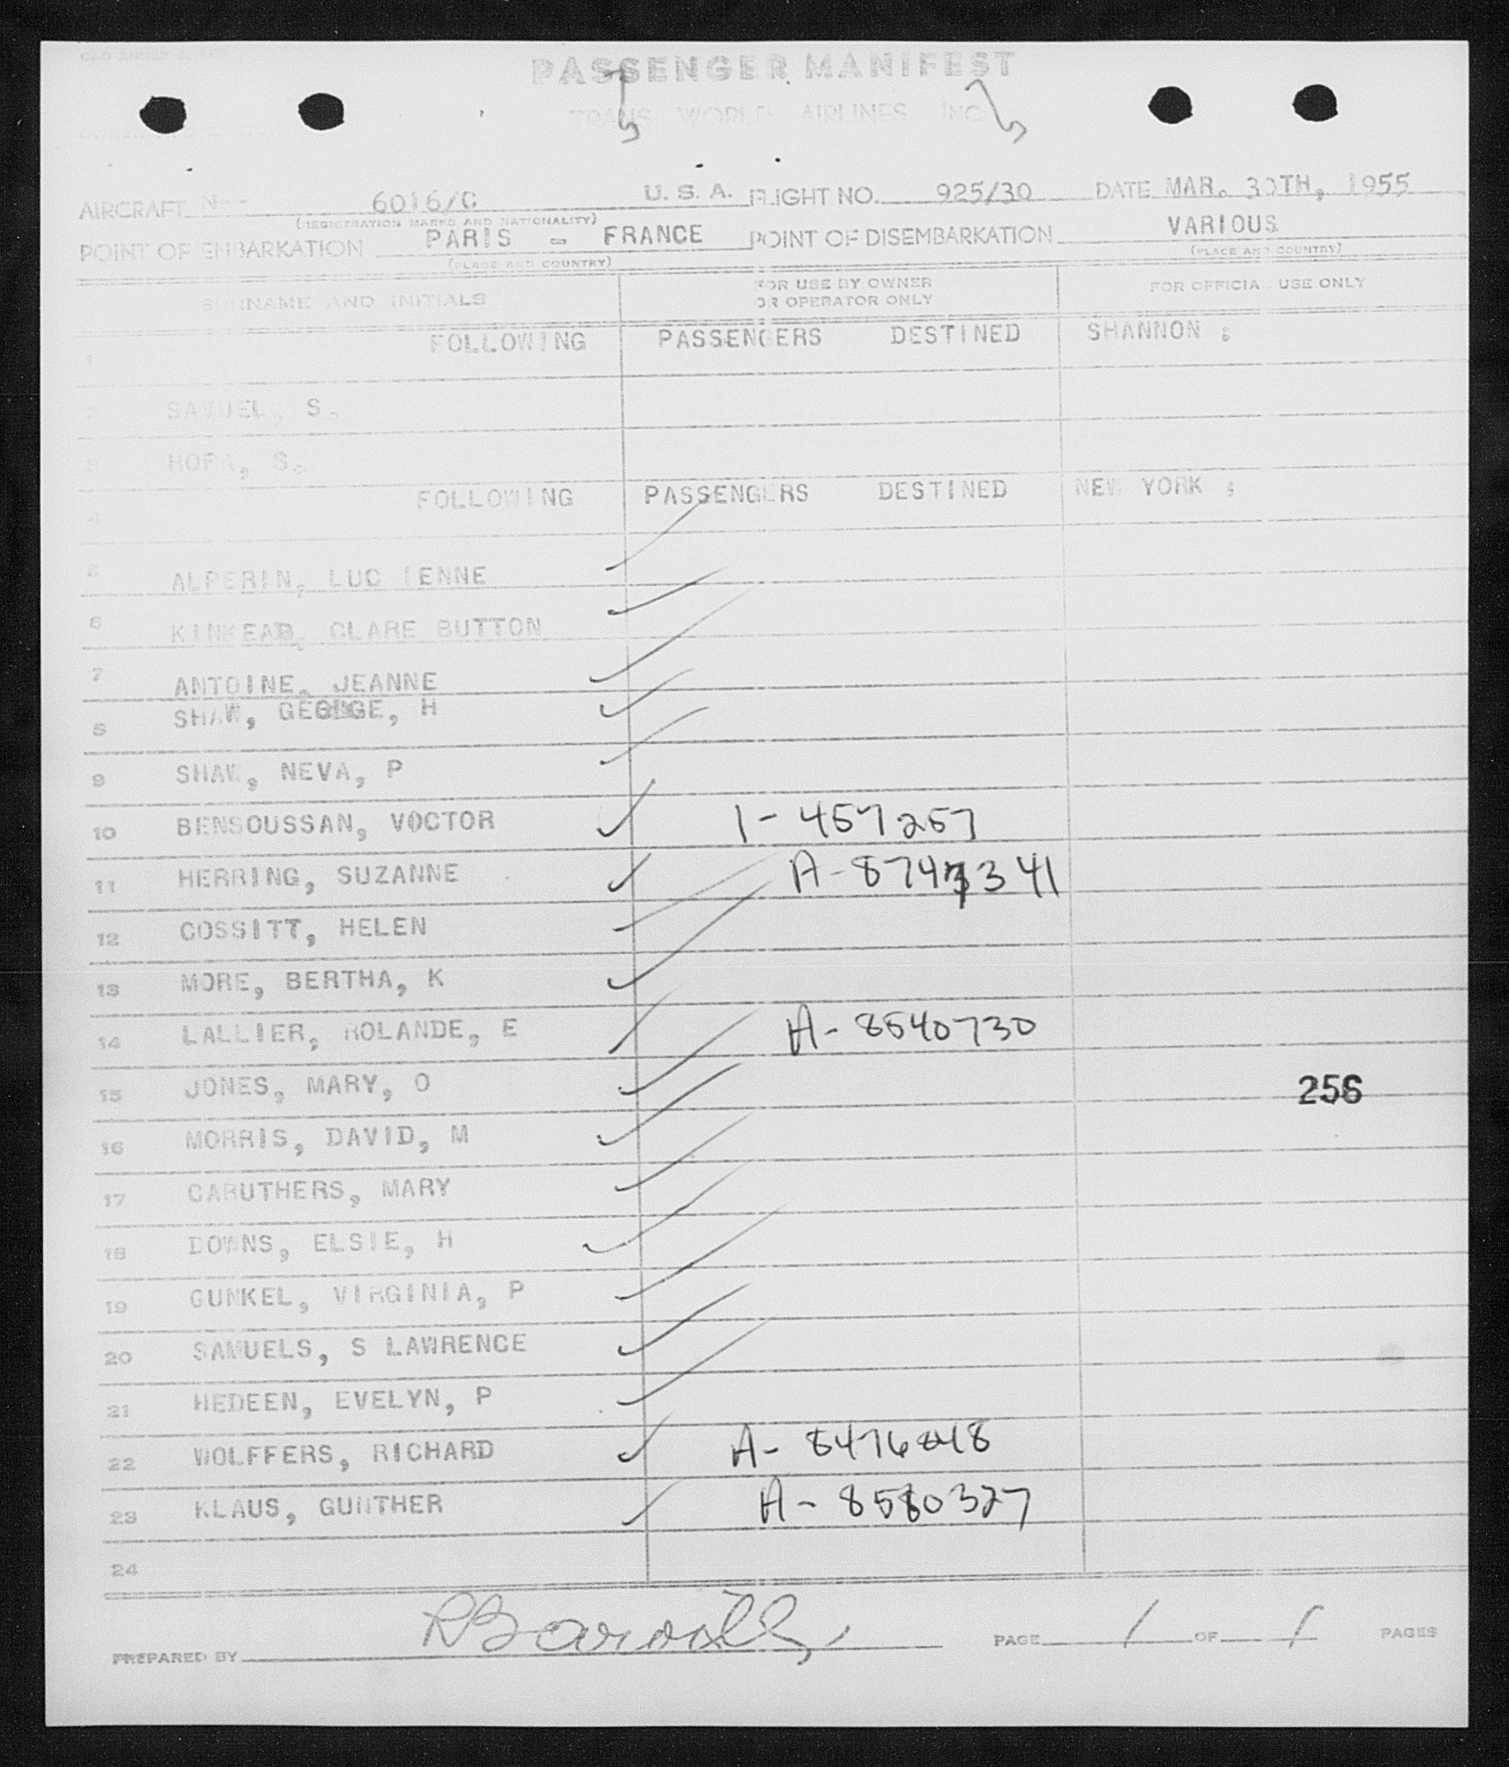 PASSENGER MANIFEST
TRANS WORLD AIRLINES INC
AIRCRAFT N-- 6016/C U. S. A. FLIGHT NO. 925/30 DATE MAR. 30TH, 1955
(REGISTRATION MARKS AND NATIONALITY)
POINT OF EMBARKATION PARIS - FRANCE POINT OF DISEMBARKATION VARIOUS
(PLACE AND COUNTRY) (PLACE AND COUNTRY)
SURNAME AND INITIALS FOR USE BY OWNER OR OPERATOR ONLY FOR OFFICIAL USE ONLY
1 FOLLOWING PASSENGERS DESTINED SHANNON :
2 SAMUEL, S.
3 HOFA, S.
4 FOLLOWING PASSENGERS DESTINED NEW YORK :
5 ALPERIN, LUCIENNE
6 KINKEAD, CLARE BUTTON
7 ANTOINE, JEANNE
8 SHAW, GEORGE, H
9 SHAW, NEVA, P
10 BENSOUSSAN, VOCTOR 1-457257
11 HERRING, SUZANNE A-8743341
12 COSSITT, HELEN
13 MORE, BERTHA, K
14 LALLIER, ROLANDE, E A-8540730
15 JONES, MARY, O 256
16 MORRIS, DAVID, M
17 CARUTHERS, MARY
18 DOWNS, ELSIE, H
19 GUNKEL, VIRGINIA, P
20 SAMUELS, S LAWRENCE
21 HEDEEN, EVELYN, P
22 WOLFFERS, RICHARD A-8476848
23 KLAUS, GUNTHER A-8580327
24
PREPARED BY PAGE 1 OF 1 PAGES